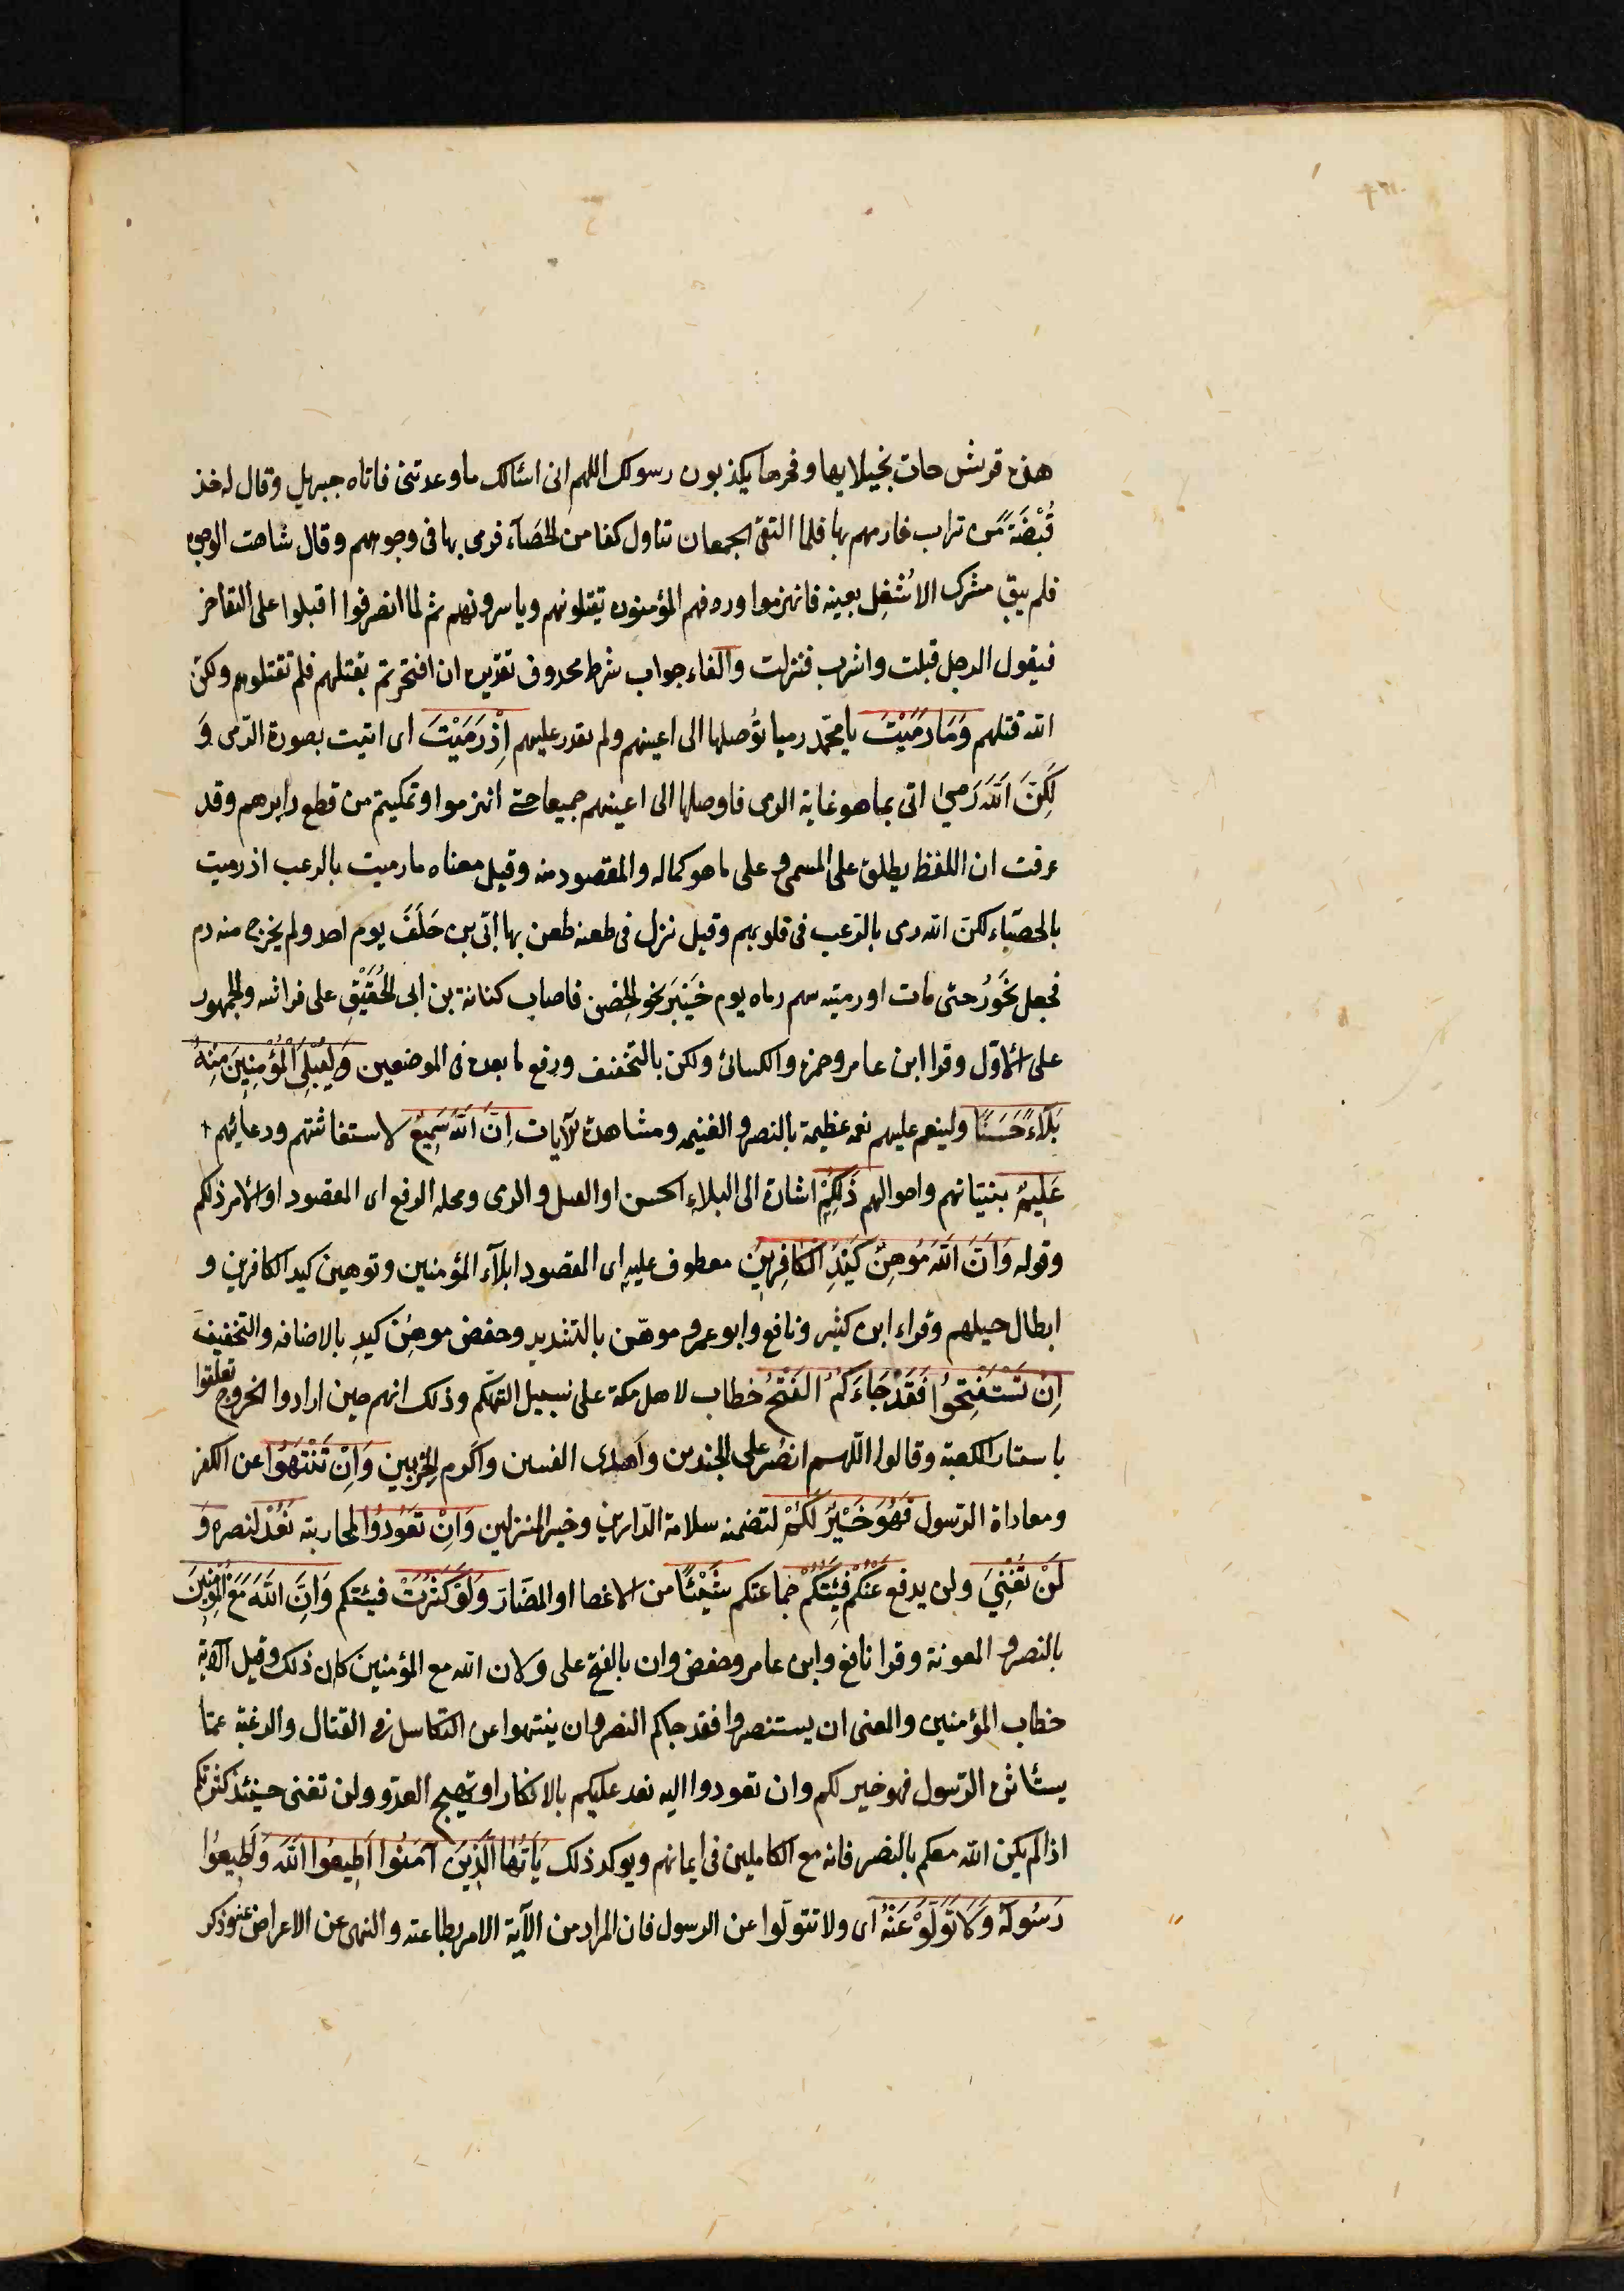 هذه قريش جات بخيلايها وفخرها يكذبون رسولك اللهم انى اسئالك ما وعدتنى فاتاه جبريل وقال له خذ
قُبْضَةً من تراب فارمهم بها فلما التقى الجمعان تناول كفا من الحصَآء فرمى بها فى وجوههم وقال شاهت الوجوه
فلم يبق مشرك الا شُغِل بعينه فانهزموا وردفهم المؤمنون يقتلونهم وياسرونهم ثم لما انصرفوا اقبلوا على التفاخر
فيقول الرجل قتلت واسرت فنزلت والفاء جواب شرط محذوف تقديره ان افتخرتم بقتلهم فلم تقتلوهم ولكن
الله قتلهم وَمَا رَمَيْتَ يا محمّد رميا تؤصلها الى اعينهم ولم تقدر عليهم اِذْ رَمَيْتَ اى اتيت بصورة الرّمى وَ
لَكِنَّ اَللهَ رَمىٰ اتى بما هو غاية الرمى فاوصلها الى اعينهم جميعا حتى انهزموا وتمكنتم من قطع دابرهم وقد
عرفت ان اللفظ يطلق على المسمى وعلى ما هو كماله والمقصود منه وقيل معناه ما رميت بالرعب اذ رميت
بالحصبَاء لكن الله رمى بالرّعب فى قلوبهم وقيل نزل فى طعنه طعن بها ابىّ بن خَلَفَ يوم احد ولم يخرج منه دم
فجعل يَخَورُ حتى مات او رميته سهم رماه يوم خَيَبَر نحو الحِصْن فاصاب كنانة بن ابى الحُقَيْقِ على فراشه والجمهور
على الاوّل وقرا ابن عامر وحمزه والكسائى ولكن بالتخفيف ورفع ما بعده فى الموضعين وَلِيُبْلِىَ الْمُؤْمِنِينَ مِنْهُ
بَلَآءً حَسَنًا ولينعم عليهم نعمة عظيمة بالنصر والغنيمه ومشاهدة الآيات اِنَّ اَللهَ سَمِيعُ لاستغاثتهم ودعائهم
عَلِيمُ بنيّاتهم واحوالهم ذَلِكُمْ اشارة الى البلاء الحسن او القتل والرمى ومحله الرفع اى المقصود او الامر ذلكم
وقوله وَاَنَّ اَللهَ مُوهِنُ كَيْدِ الْكَافِرِينَ معطوف عليه اى المقصود ابلآء المؤمنين وتوهين كيد الكافرين و
ابطال حيلهم وقراء ابن كثير ونافع وابو عمرو موهّن بالتشديد وحفض موهِنُ كيدِ بالاضافه والتخفيف
اِنْ تَسْتَفْتِحُوا فَقَدْ جَاءَكُمُ الفَتْحُ خطاب لاهل مكة على سبيل التهكم وذلك انهم حين ارادوا الخروج تعلقوا
باستار الكعبة وقالوا اللّهم انصر على الجندين واَهدى الفئتين واكرم الحزبين وَاِنْ تَنْتَهُوا عن الكفر
ومعاداة الرّسول فَهُوَ خَيْرُ لَكُمْ لتضمنه سلامة الدّارين وخير المنزلين وَاِنْ تَعُودُوا لمحاربته نَعُدْ لنصره وَ
لَنْ تُغْنِىَ ولن يدفع عَنْكُمْ فِئَتُكُمْ جماعتكم شَيْئًا من الاغنا او المضَارّ وَلَوْ كَثُرَتْ فيئتكم وَاَنَّ اللهَ مَعَ الْمُؤْمِنِينَ
بالنصر والمعونة وقرا نافع وابن عامر وحفض وان بالفتح على ولان الله مع المؤمنين كان ذلك وقيل الآية
خطاب المؤمنين والمعنى ان يستنصروا فقد جاكم النصر وان ينتهوا عن التكاسل فى القتال والرغبة عمّا
يستاثره الرّسول فهو خير لكم وان تعودوا اليه نعد عليكم بالانكار او تهيج العدوّ ولن تغنى حينئذ كثرتكم
اذا لم يكن الله معكم بالنصر فانه مع الكاملين فى ايمانهم ويوكد ذلك يَاَيُّهَا الَّذِينَ آمَنُوا اَطِيعُوا اللهَ وَاَطِيعُوا
رَسُولَهُ وَلَا تَوَلَّوْ عَنْهُ اى ولا تتولّوا عن الرسول فان المراد من الآية الامر بطاعته والنهى عن الاعراض عنه وذكر